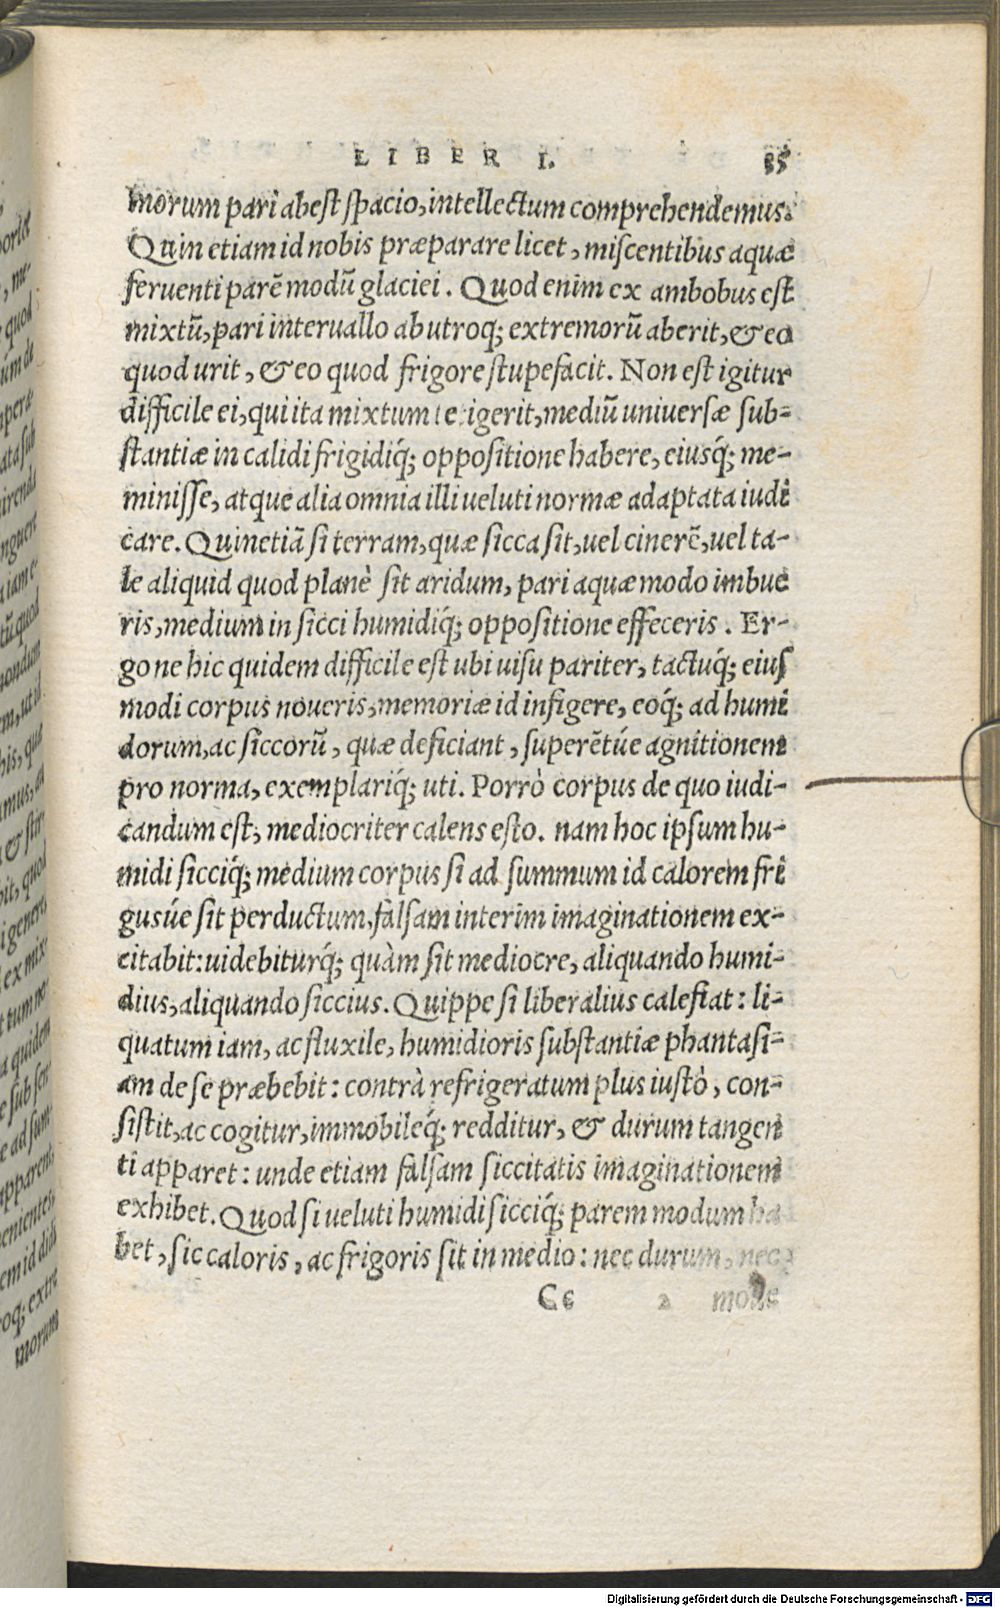 LIBER I. 35
morum pari abest spacio, intellectum comprehendemus.
Quin etiam id nobis præparare licet, miscentibus aquæ
feruenti parē modū glaciei. Quod enim ex ambobus est
mixtū, pari interuallo ab utroq; extremorū aberit, & eo
quod urit, & eo quod frigore stupefacit. Non est igitur
difficile ei, qui ita mixtum tetigerit, mediū uniuersæ sub-
stantiæ in calidi frigidiq́; oppositione habere, eiusq́; me-
minisse, atque alia omnia illi ueluti normæ adaptata iudi
care. Quinetiā si terram, quæ sicca sit, uel cinerē, uel ta-
le aliquid quod planè sit aridum, pari aquæ modo imbue
ris, medium in sicci humidiq́; oppositione effeceris. Er-
go ne hic quidem difficile est ubi uisu pariter, tactuq́; eius
modi corpus noueris, memoriæ id infigere, eoq́; ad humi
dorum, ac siccorū, quæ deficiant, superētúe agnitionem
pro norma, exemplariq́; uti. Porrò corpus de quo iudi-
candum est, mediocriter calens esto. nam hoc ipsum hu-
midi sicciq́; medium corpus si ad summum id calorem fri
gusúe sit perductum, falsam interim imaginationem ex-
citabit: uidebiturq́; quàm sit mediocre, aliquando humi-
dius, aliquando siccius. Quippe si liberalius calefiat: li-
quatum iam, ac fluxile, humidioris substantiæ phantasi-
am de se præbebit: contrà refrigeratum plus iustò, con-
sistit, ac cogitur, immobileq́; redditur, & durum tangen
ti apparet: unde etiam falsam siccitatis imaginationem
exhibet. Quod si ueluti humidi sicciq́; parem modum ha
bet, sic caloris, ac frigoris sit in medio: nec durum, nec
Cc 2 molle